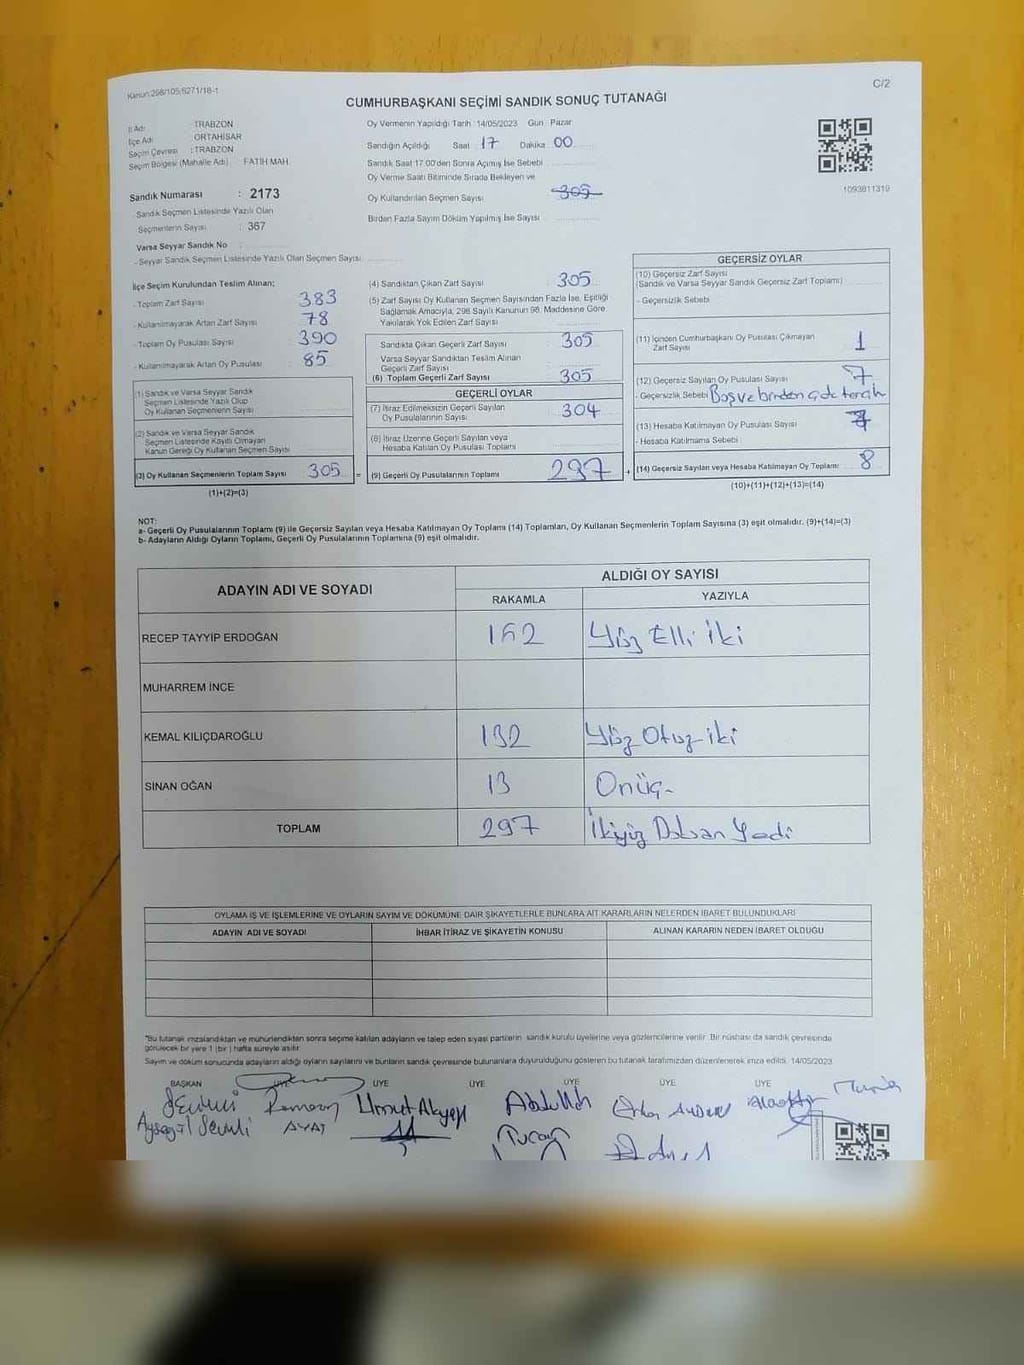 Kanun:298/105;6271/18-1
C/2
CUMHURBAŞKANI SEÇİMİ SANDIK SONUÇ TUTANAĞI
İl Adı : TRABZON
İlçe Adı : ORTAHİSAR
Seçim Çevresi : TRABZON
Seçim Bölgesi (Mahalle Adı) FATİH MAH.
Sandık Numarası : 2173
- Sandık Seçmen Listesinde Yazılı Olan
Seçmenlerin Sayısı : 367
Varsa Seyyar Sandık No :
- Seyyar Sandık Seçmen Listesinde Yazılı Olan Seçmen Sayısı
Oy Vermenin Yapıldığı Tarih 14/05/2023 Gün Pazar
Sandığın Açıldığı Saat 17 Dakika 00
Sandık Saat 17.00'den Sonra Açılmış İse Sebebi
Oy Verme Saati Bitiminde Sırada Bekleyen ve
Oy Kullandırılan Seçmen Sayısı 305
Birden Fazla Sayım Döküm Yapılmış İse Sayısı
1093811319
İlçe Seçim Kurulundan Teslim Alınan;
- Toplam Zarf Sayısı 383
- Kullanılmayarak Artan Zarf Sayısı 78
- Toplam Oy Pusulası Sayısı 390
- Kullanılmayarak Artan Oy Pusulası 85
(1) Sandık ve Varsa Seyyar Sandık
Seçmen Listesinde Yazılı Olup
Oy Kullanan Seçmenlerin Sayısı
(2) Sandık ve Varsa Seyyar Sandık
Seçmen Listesinde Kayıtlı Olmayan
Kanun Gereği Oy Kullanan Seçmen Sayısı
(3) Oy Kullanan Seçmenlerin Toplam Sayısı 305
(1)+(2)=(3)
(4) Sandıktan Çıkan Zarf Sayısı 305
(5) Zarf Sayısı Oy Kullanan Seçmen Sayısından Fazla İse, Eşitliği
Sağlamak Amacıyla, 298 Sayılı Kanunun 98. Maddesine Göre
Yakılarak Yok Edilen Zarf Sayısı
Sandıkta Çıkan Geçerli Zarf Sayısı 305
Varsa Seyyar Sandıktan Teslim Alınan
Geçerli Zarf Sayısı
(6) Toplam Geçerli Zarf Sayısı 305
GEÇERLİ OYLAR
(7) İtiraz Edilmeksizin Geçerli Sayılan
Oy Pusulalarının Sayısı 304
(8) İtiraz Üzerine Geçerli Sayılan veya
Hesaba Katılan Oy Pusulası Toplamı
= (9) Geçerli Oy Pusulalarının Toplamı 297 +
GEÇERSİZ OYLAR
(10) Geçersiz Zarf Sayısı
(Sandık ve Varsa Seyyar Sandık Geçersiz Zarf Toplamı)
- Geçersizlik Sebebi
(11) İçinden Cumhurbaşkanı Oy Pusulası Çıkmayan
Zarf Sayısı 1
(12) Geçersiz Sayılan Oy Pusulası Sayısı 7
- Geçersizlik Sebebi Boş ve birden çok tercih
(13) Hesaba Katılmayan Oy Pusulası Sayısı 7
- Hesaba Katılmama Sebebi
(14) Geçersiz Sayılan veya Hesaba Katılmayan Oy Toplamı 8
(10)+(11)+(12)+(13)=(14)
NOT:
a- Geçerli Oy Pusulalarının Toplamı (9) ile Geçersiz Sayılan veya Hesaba Katılmayan Oy Toplamı (14) Toplamları, Oy Kullanan Seçmenlerin Toplam Sayısına (3) eşit olmalıdır. (9)+(14)=(3)
b- Adayların Aldığı Oyların Toplamı, Geçerli Oy Pusulalarının Toplamına (9) eşit olmalıdır.
ADAYIN ADI VE SOYADI ALDIĞI OY SAYISI
RAKAMLA YAZIYLA
RECEP TAYYİP ERDOĞAN 152 Yüz Elli İki
MUHARREM İNCE
KEMAL KILIÇDAROĞLU 132 Yüz Otuz iki
SİNAN OĞAN 13 Onüç
TOPLAM 297 İkiyüz Doksan Yedi
OYLAMA İŞ VE İŞLEMLERİNE VE OYLARIN SAYIM VE DÖKÜMÜNE DAİR ŞİKAYETLERLE BUNLARA AİT KARARLARIN NELERDEN İBARET BULUNDUKLARI
ADAYIN ADI VE SOYADI İHBAR İTİRAZ VE ŞİKAYETİN KONUSU ALINAN KARARIN NEDEN İBARET OLDUĞU
*Bu tutanak imzalandıktan ve mühürlendikten sonra seçime katılan adayların ve talep eden siyasi partilerin sandık kurulu üyelerine veya gözlemcilerine verilir. Bir nüshası da sandık çevresinde
görülecek bir yere 1 (bir) hafta süreyle asılır.
Sayım ve döküm sonucunda adayların aldığı oyların sayılarını ve bunların sandık çevresinde bulunanlara duyurulduğunu gösteren bu tutanak tarafımızdan düzenlenerek imza edildi. 14/05/2023
BAŞKAN ÜYE ÜYE ÜYE ÜYE ÜYE
Ramazan Umut Akyay Abdullah
Ayşegül Sevimli AYAZ Turan